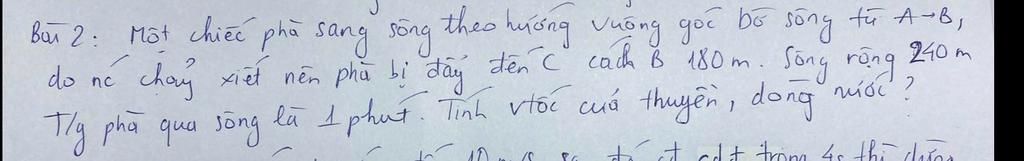 Bài 2: Một chiếc phà sang sông theo hướng vuông góc bờ sông từ A→B,
do nc chảy xiết nên phà bị đẩy đến C cách B 180 m. Sông rộng 240 m
T/g phà qua sông là 1 phút. Tính vtốc của thuyền, dòng nước?
10 m/s đi đt trong 4s thì dừng